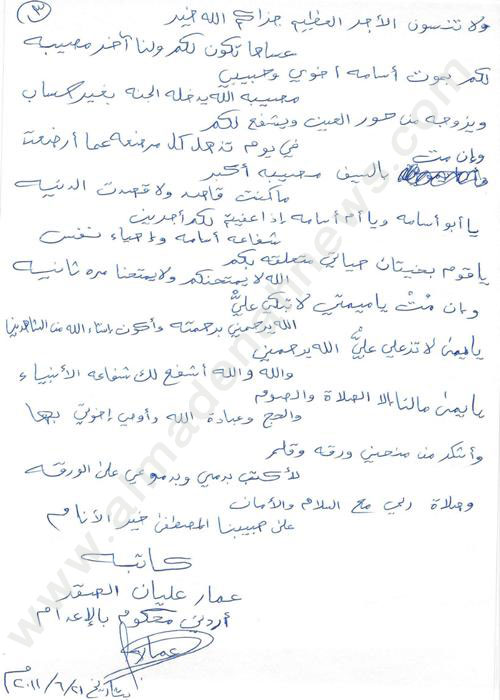 ٣
ولا تنسون الأجر العظيم جزاكم الله خير
عساها تكون لكم ولنا آخر مصيبه
لكم بموت أسامه أخوي وحبيبي
مصيبه الله يدخله الجنه بغير حساب
ويزوجه من حور العين ويشفع لكم
في يوم تذهل كل مرضعه عما أرضعت
وإن مت بالسيف مصيبه أكبر
ما كنت قاصد ولا قصدت الدنيه
يا أبو أسامه ويا أم أسامه إذا عفيتم لكم أجرين
شفاعه أسامه وإحياء نفس
يا قوم بغيتان حياتي متعلقه بكم
الله لا يمتحنكم ولا يمتحنا مره ثانيه
وإن مُتْ يا ميمتي لا تبكي عليّْ
الله يرحمني برحمته وأكون إنشاء الله من
يا يمى لا تزعلي عليّ الله يرحمني
والله والله أشفع لك شفاعه الأنبياء
يا يمى مالنا إلا الصلاة والصوم
والحج وعبادة الله وأوصي إخوتي بها
وأشكر من منحني ورقه وقلم
لأكتب بدمي وبدموعي على الورقه
وصلاة ربي مع السلام والأمان
على حبيبنا المصطفى خير الأنام
كاتبه
عمار عليان الصقر
أردني محكوم بالإعدام
عمار
بتاريخ ٢٠١١/٦/٢١ م
www.almadenahnews.com